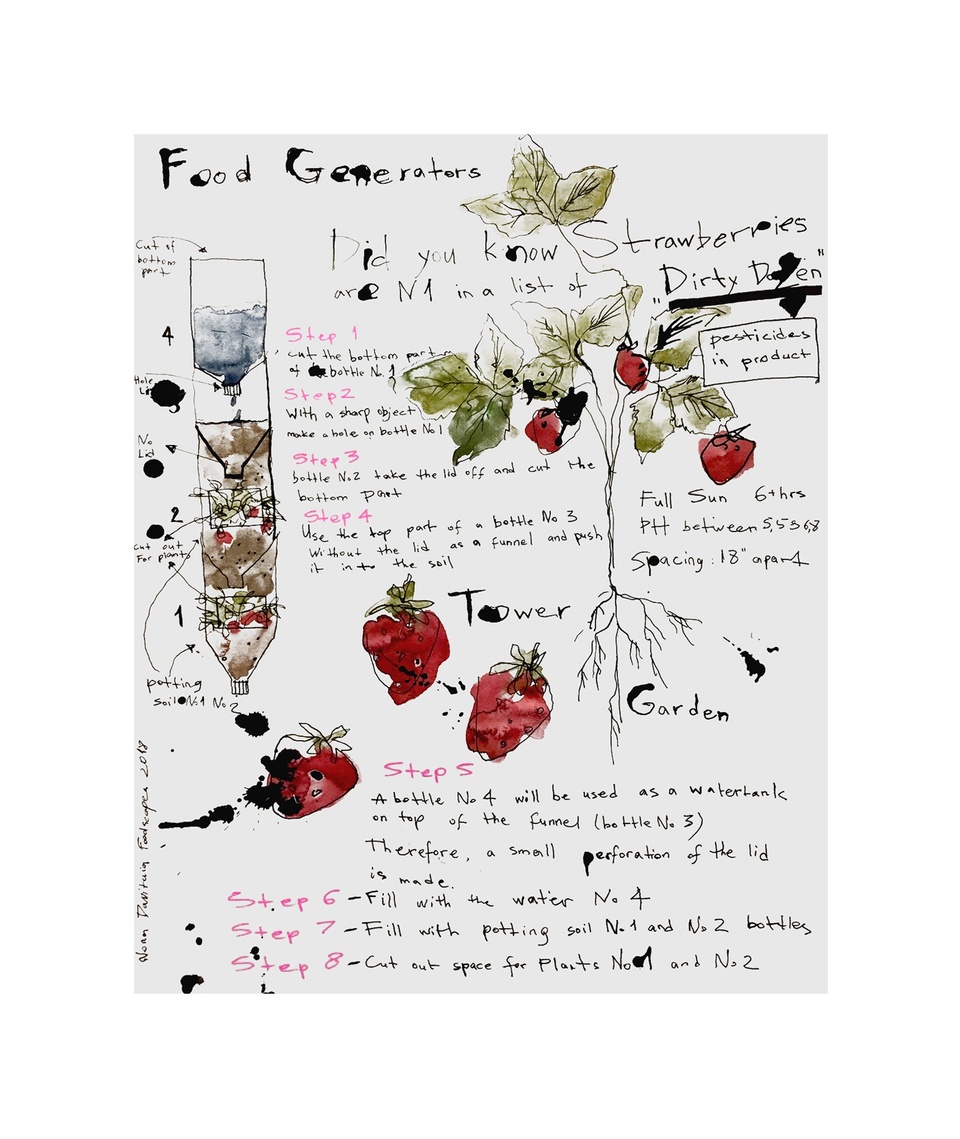 Food Generators
Did you know Strawberries
are N1 in a list of "Dirty Dozen"
pesticides
in product
Cut of
bottom
part
4
Hole
No
Lid
2
Cut out
For plants
1
potting
soil N:1 No2
Step 1
cut the bottom part
of bottle N:1
Step2
With a sharp object
make a hole on bottle No1
Step 3
bottle No2 take the lid off and cut the
bottom part
Step 4
Use the top part of a bottle No 3
Without the lid as a funnel and push
it into the soil
Full Sun 6+hrs
PH between
Spacing: 18" apart
Tower
Garden
Step 5
A bottle No 4 will be used as a watertank
on top of the funnel (bottle No 3)
Therefore, a small perforation of the lid
is made.
Step 6 - Fill with the water No 4
Step 7 - Fill with potting soil No1 and No2 bottles
Step 8 - Cut out space for Plants No1 and No2
Foodscapes 2017